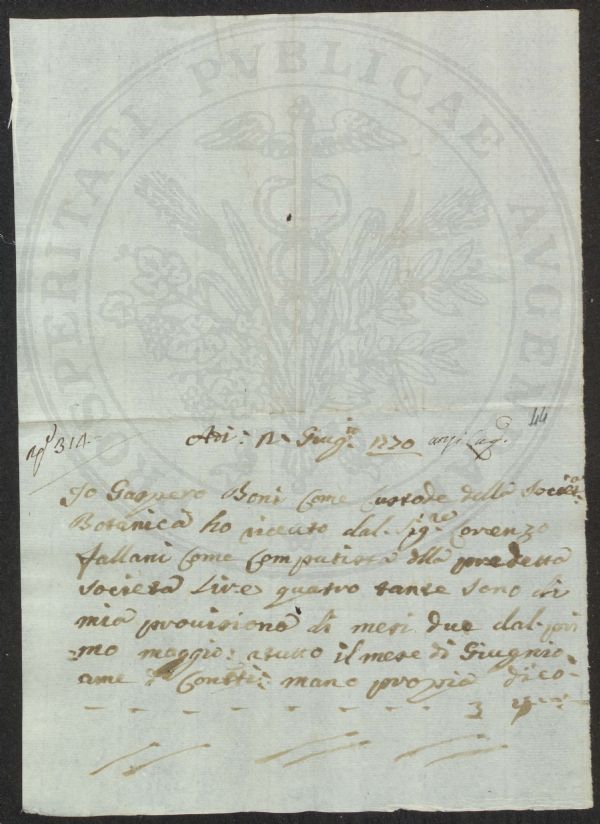 PROSPERITATI PVBLICAE AVGENDAE
44
314
Adi: 12 Giug:º 1770
Io Gaspero Boni Come Custode della Societa
Botanica ho riceuto dal Sigre Lorenzo
fallani Come Computista della predetta
Societa Lire quatro tante Sono di
mia prouisione di mesi due dal pri
mo maggio: atutto il mese di Giugnio
ame Contti: mano propia dico